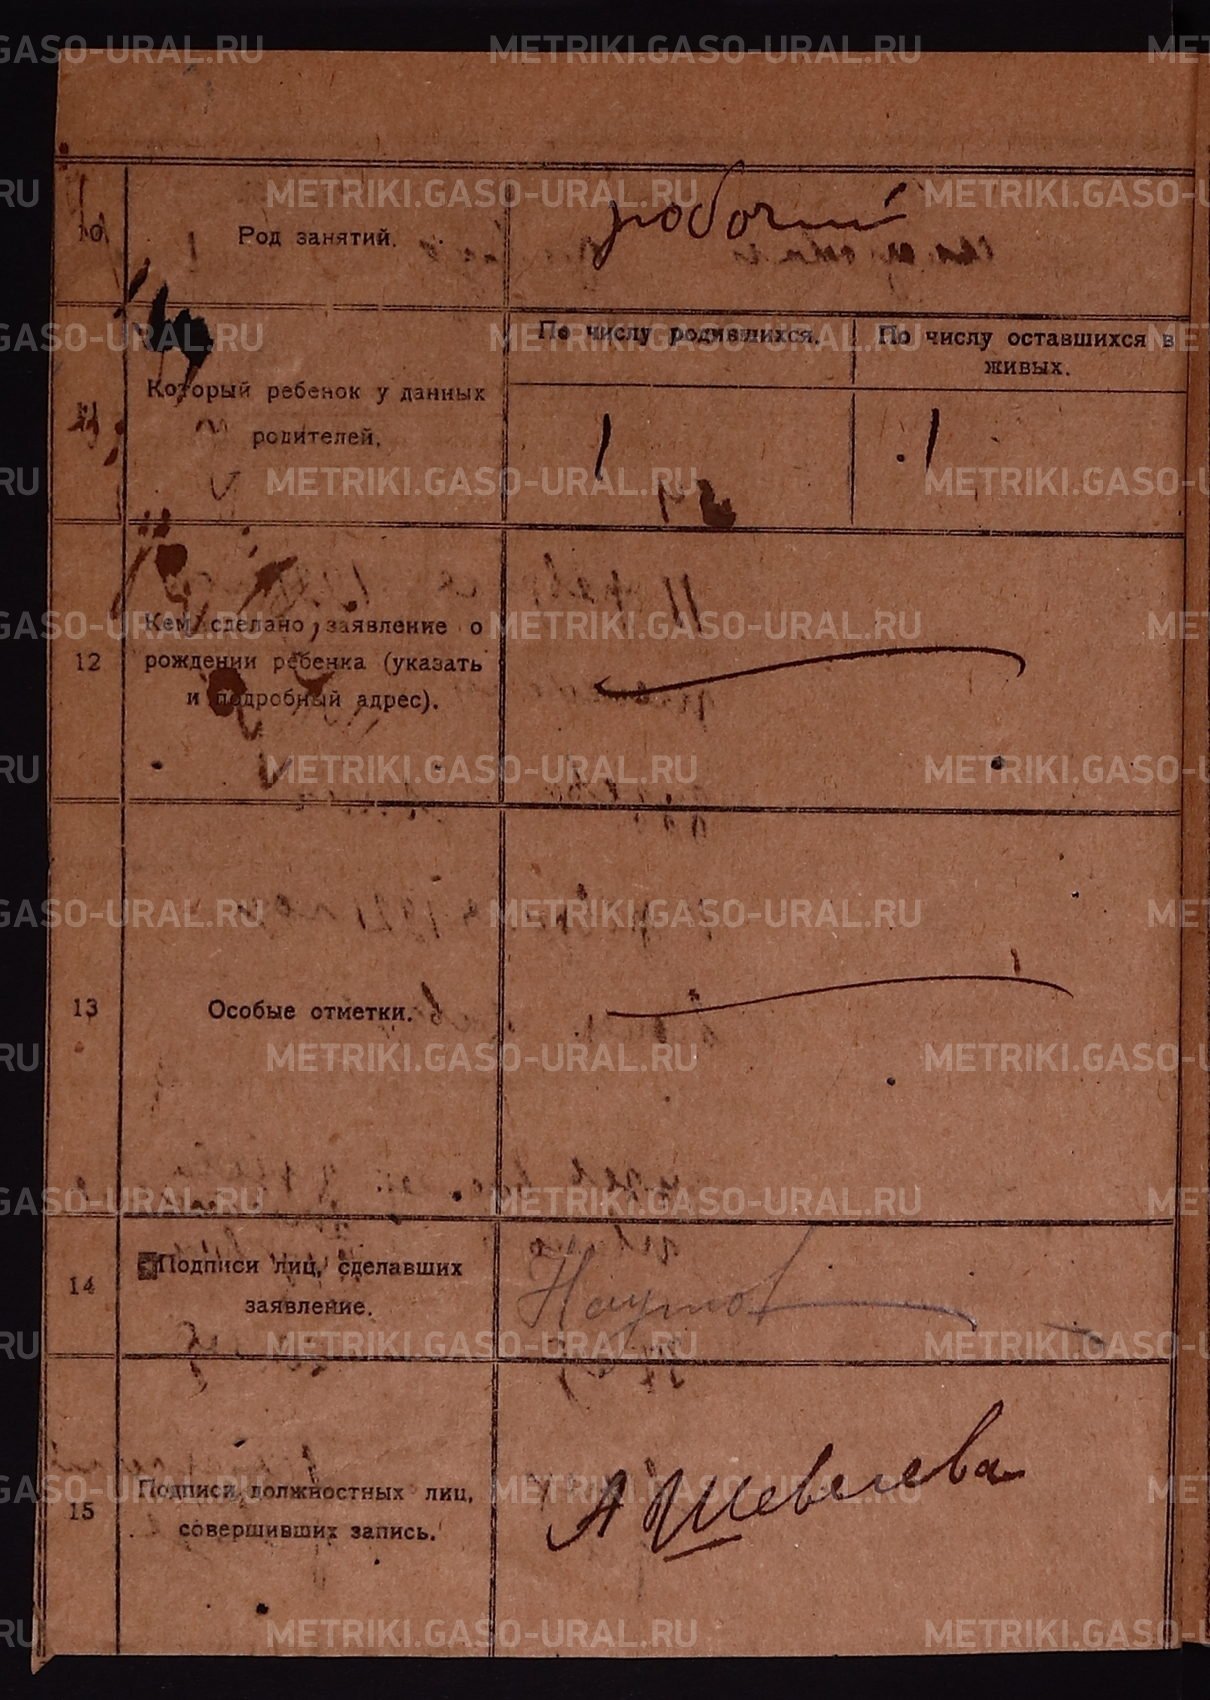 10
Род занятий.
рабочий
11
Который ребенок у данных
родителей.
По числу родившихся.
По числу оставшихся в
живых.
1
1
12
Кем сделано заявление о
рождении ребенка (указать
и подробный адрес).
13
Особые отметки.
14
Подписи лиц, сделавших
заявление.
Наумов
15
Подписи должностных лиц,
совершивших запись.
А Шевелева
METRIKI.GASO-URAL.RU